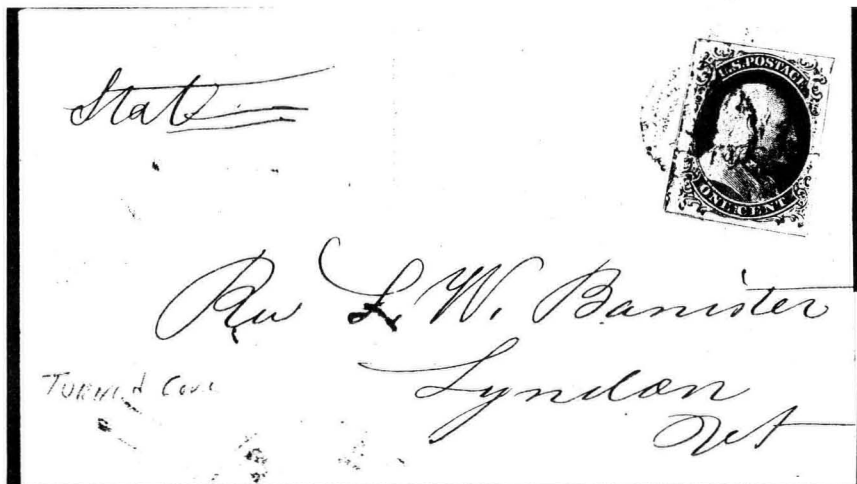 State
U.S. POSTAGE
ONE CENT
Rev L. W. Banister
Lyndon
Vt
TURNED COVE